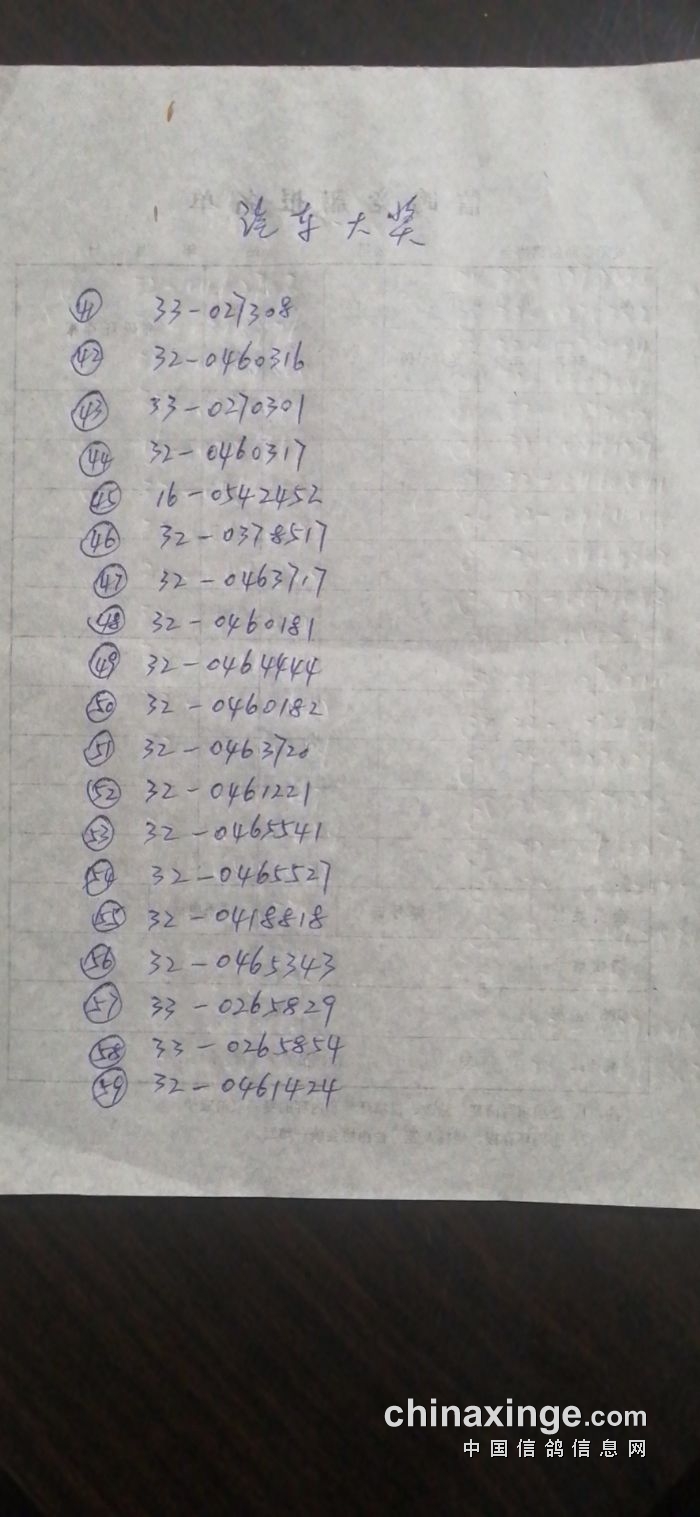 汽车大奖
㊶ 33-027308
㊷ 32-0460316
㊸ 33-0270301
㊹ 32-0460317
㊺ 16-0542452
㊻ 32-0378517
㊼ 32-0463717
㊽ 32-0460181
㊾ 32-0464444
㊿ 32-0460182
(51) 32-0463720
(52) 32-0461221
(53) 32-0465541
(54) 32-0465527
(55) 32-0418818
(56) 32-0465343
(57) 33-0265829
(58) 33-0265854
(59) 32-0461424
chinaxinge.com
中国信鸽信息网